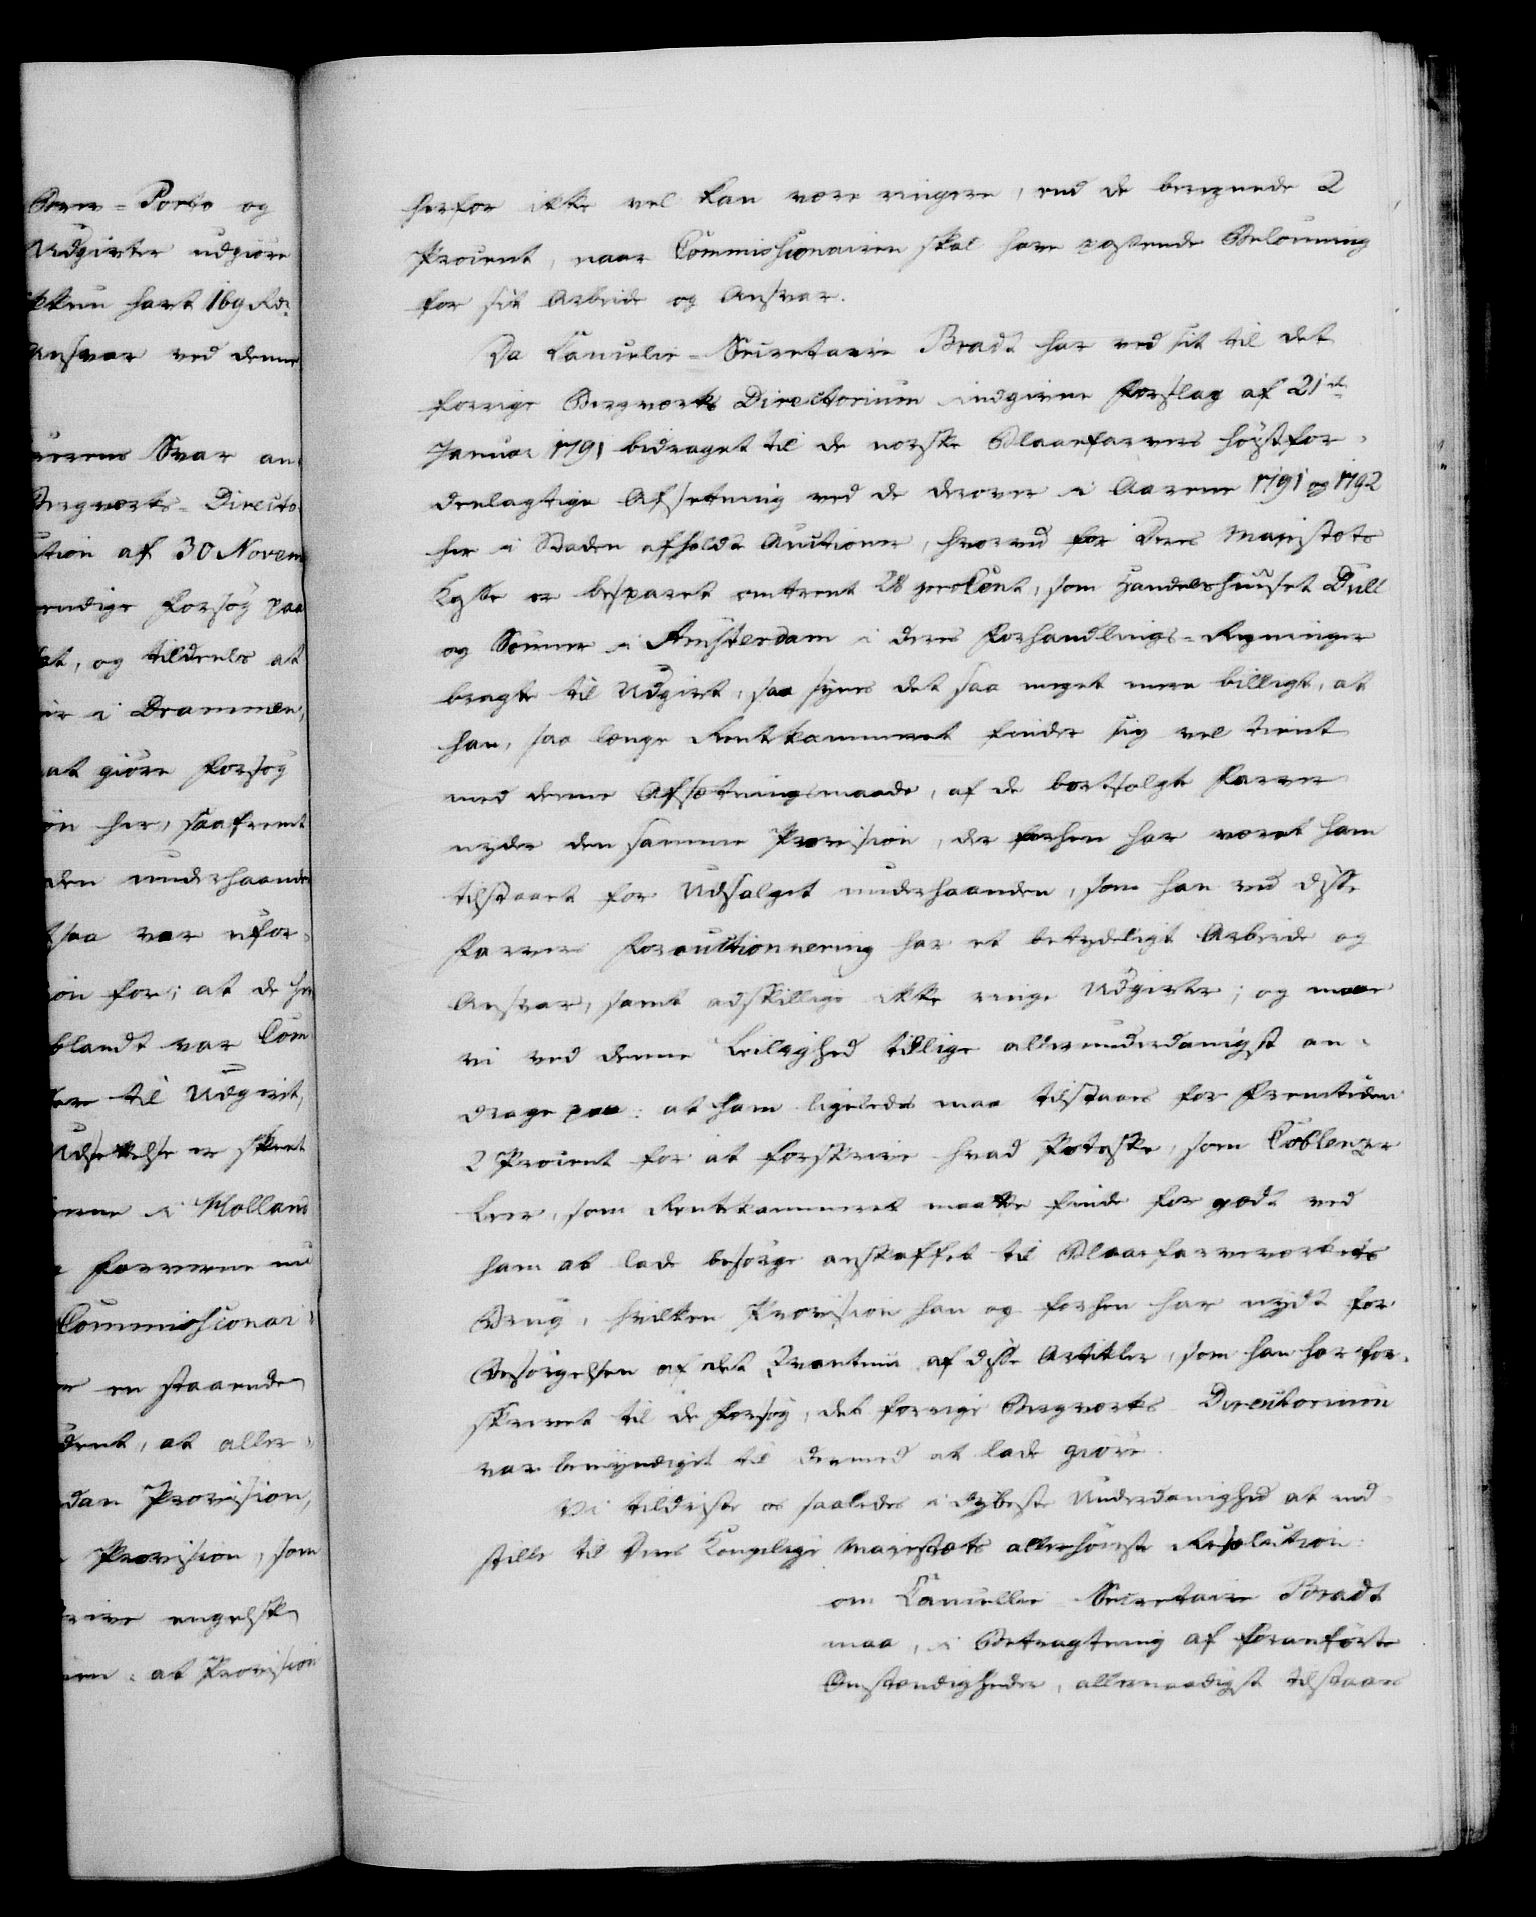 Brev-Porto og
Udgivter udgiøre
havt 169 Rdr
Ansvar ved denne
Svar an-
Bergverks-Directo-
af 30 Novem
Forsøg paa
at, og tildeels at
i Drammen,
at giøre Forsøg
her, saafremt
den underhaanden
saa var ufor-
for; at de har
blandt var Com
til Udgivt,
Udsettelse er skeet
i Holland
Farverne nu
Commissionai-
en staaende
at aller-
dan Provision,
Provision, som
engelsk
at Provision
herfor ikke vel kan være ringere, end de beregnede 2
Procent, naar Commissionairen skal have passende Belønning
for sit Arbeide og Ansvar.
Da Cancelie-Secretaire Bradt har ved sit til det
forrige Bergverks Directorium indgivne Forslag af 21de
Januar 1791 bidraget til de norske Blaaefarvers høystfor-
deelagtige Afsetning ved de derover i Aarene 1791 og 1792
her i Staden afholdte Auctioner, hvorved for Deres Majestets
Kasse er besparet omtrent 28 proCent, som Handelshuuset Dull
og Sønner i Amsterdam i deres Forhandlings-Regninger
bragte til Udgivt, saa synes det saa meget mere billigt, at
han, saa længe Rentekammeret finder sig vel tient
med denne Afsætningsmaade, af de bortsolgte Farver
nyder den samme Provision, der forhen har været ham
tilstaaet for Udsalget underhaanden, som han ved disse
Farvers Forauctionnering har et betydeligt Arbeide og
Ansvar, samt adskillige ikke ringe Udgivter; og maae
vi ved denne Leilighed tillige allerunderdanigst an-
drage paa: at ham ligeledes maa tilstaaes for Fremtiden
2 Procent for at forskrive hvad Potaske, som Coblenzer
Leer, som Rentekammeret maatte finde for godt ved
ham at lade besørge anskaffet til Blaaefarveverkets
Brug, hvilken Provision han og forhen har nydt for
Besørgelsen af det Qvantum af disse Artikler, som han har for-
skrevet til de Forsøg, det forrige Bergverks Directorium
var bemyndiget til dermed at lade giøre.
Vi tildriste os saaledes i dybeste Underdanighed at ind-
stille til Deres Kongelige Majestets allerhøieste Resolution:
om Cancellie Secretaire Bradt
maa, i Betragtning af foranførte
Omstændigheder, allernaadigst tilstaaes